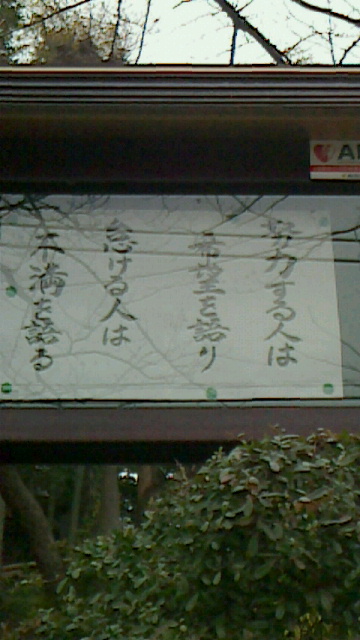 努力する人は
希望を語り
怠ける人は
不満を語る